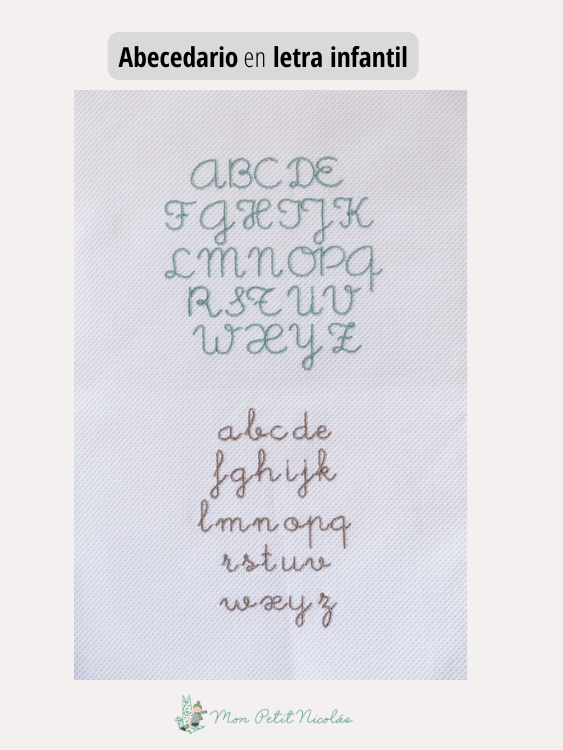 Abecedario en letra infantil
ABCDE
FGHIJK
LMNOPQ
RSTUV
WXYZ
abcde
fghijk
lmnopq
rstuv
wxyz
Mon Petit Nicolás